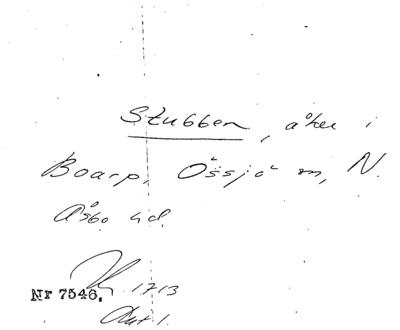 Stubben, åker i
Boarp, Össjö sn, N.
Åsbo hd.
1713
Nr 7546.
Akt 1.